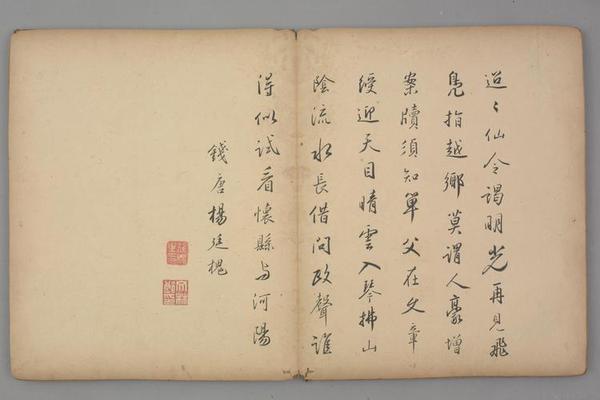 迢々仙令謁明光再見飛
鳧指越鄉莫謂人豪增
案牘須知單父在文章
綬迎天目晴雲入琴拂山
陰流水長借問政聲誰
得似試看懷縣与河陽
錢唐楊廷槐